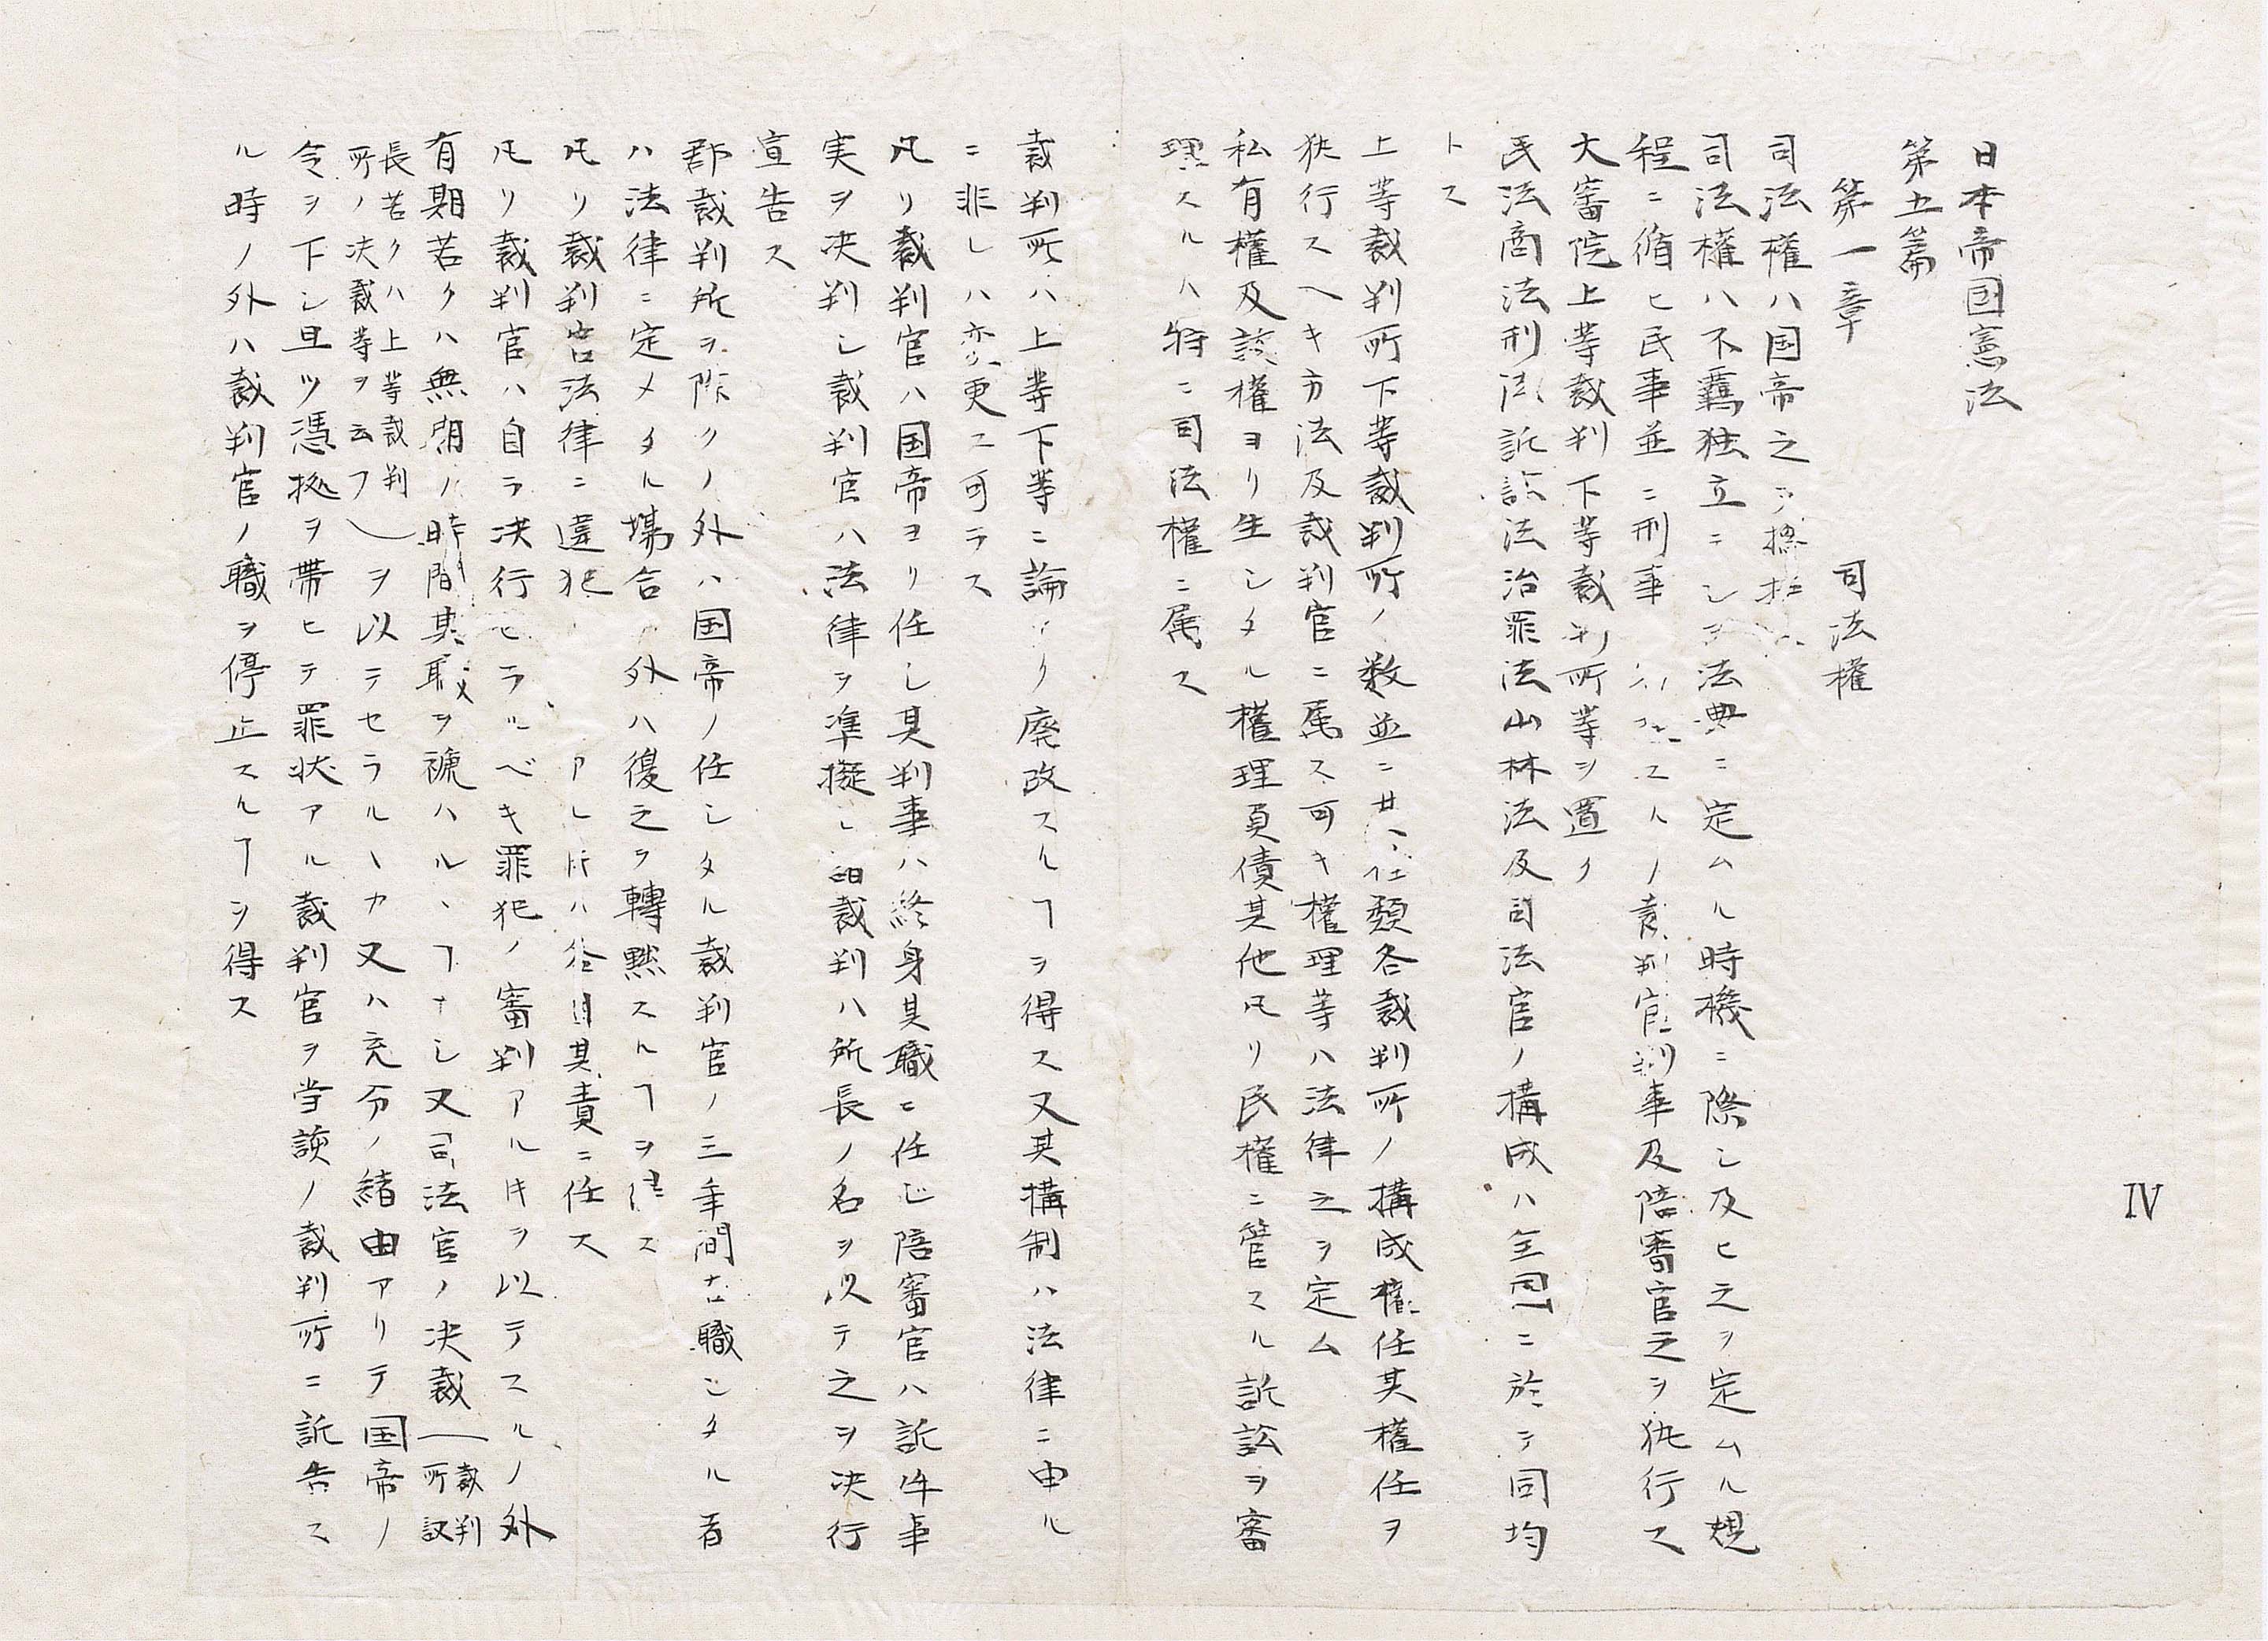 IV
日本帝国憲法
第五篇
第一章 司法權
司法權ハ国帝之ヲ摠括ス
司法權ハ不羈独立ニシテ法典ニ定ムル時機ニ際シ及ヒ之ヲ定ムル規
程ニ循ヒ民事並ニ刑事 スルノ裁判官判事及陪審官之ヲ執行ス
大審院上等裁判下等裁判所等ヲ置ク
民法商法刑法訴訟法治罪法山林法及司法官ノ構成ハ全国ニ於テ同均
トス
上等裁判所下等裁判所ノ数並ニ其種類各裁判所ノ構成權任其權任ヲ
執行スヘキ方法及裁判官ニ属ス可キ權理等ハ法律之ヲ定ム
私有權及該權ヨリ生シタル權理負債其他凡リ民權ニ管スル訴訟ヲ審
理スルハ特ニ司法權ニ属ス
裁判所ハ上等下等ニ論ナク廃改スルヿヲ得ス又其構制ハ法律ニ由ル
ニ非レハ変更ス可ラス
凡リ裁判官ハ国帝ヨリ任シ其判事ハ終身其職ニ任じ陪審官ハ訴件事
実ヲ决判シ裁判官ハ法律ヲ準擬シ諸裁判ハ所長ノ名ヲ以テ之ヲ决行
宣告ス
郡裁判所ヲ除クノ外ハ国帝ノ任シタル裁判官ノ三年間在職シタル者
ハ法律ニ定メタル場合ノ外ハ復之ヲ轉黙スルヿヲ得ス
凡リ裁判官法律ニ違犯 アル𪜈ハ各自其責ニ任ス
凡リ裁判官ハ自ラ决行セラルベキ罪犯ノ審判アルキヲ以テスルノ外
有期若クハ無期ノ時間其職ヲ褫ハルヽヿナシ又司法官ノ决裁(裁判所議
長若クハ上等裁判所ノ决裁等ヲ云フ)ヲ以テセラルヽカ又ハ充分ノ緒由アリテ国帝ノ
令ヲ下シ且ツ憑拠ヲ帯ヒテ罪状アル裁判官ヲ当該ノ裁判所ニ訴告ス
ル時ノ外ハ裁判官ノ職ヲ停止スルヿヲ得ス